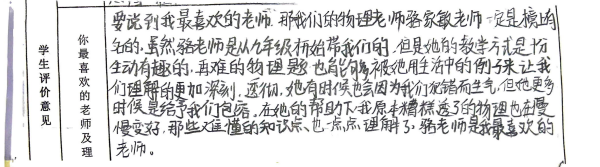 学生评价意见
你最喜欢的老师及理
要说到我最喜欢的老师,那我们的物理老师骆家敏老师一定是榜上
名的,虽然骆老师是从九年级开始带我们的,但是她的教学方式是十分
生动有趣的,再难的物理题也能够被她用生活中的例子来让我
们理解的更加深刻、透彻,她有时候也会因为我们犯错而生气,但她更多
时候是给予我们包容,在她的帮助下我原本糟糕透了的物理也在慢
慢变好,那些难懂的知识点也一点点理解了,骆老师是我最喜欢的
老师。